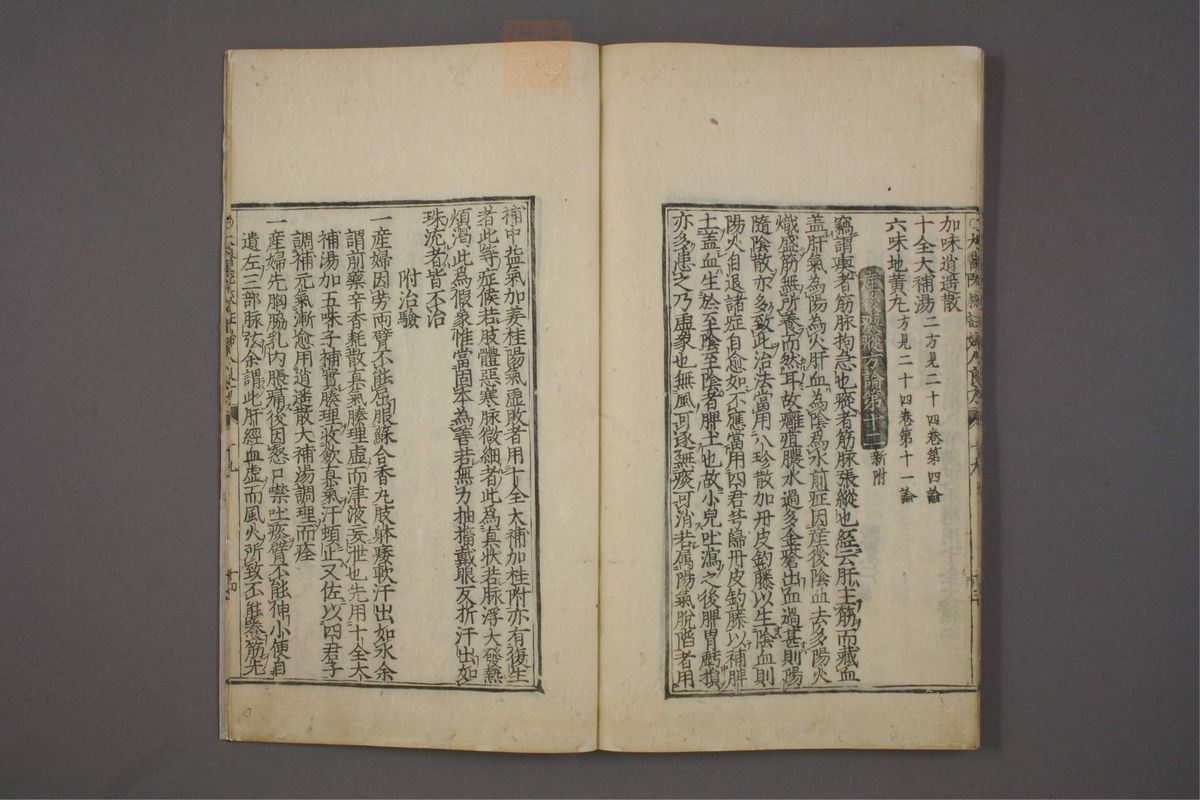 加味逍遥散
十全大補湯二方見二十四卷第四論
六味地黄丸方見二十四卷第十一論
産後瘈瘲方論第十二新附
竊謂瘈者筋脉拘急也瘲者筋脉張縱也經云肝主筋而藏血
盖肝氣為陽為火肝血為陰為水前症因産後陰血去多陽火
熾盛筋無所養而然耳故癰疽膿水過多金瘡出血過甚則陽
隨陰散亦多致此治法當用八珍散加丹皮鈎藤以生陰血則
陽火自退諸症自愈如不應當用四君芎歸丹皮鈎藤以補脾
土盖血生於至陰至陰者脾土也故小兒吐瀉之後脾胃虧損
亦多患之乃虚象也無風可逐無痰可消若属陽氣脫陷者用
補中益氣加姜桂陽氣虚敗者用十全大補加桂附亦有復生
者此等症候若肢體惡寒脉微細者此為真状若脉浮大發熱
煩渴此為假象惟當固本為善若無力抽搐戴眼反折汗出如
珠流者皆不治
附治驗
一産婦因労両臂不能屈服蘇合香丸肢躰痿軟汗出如水余
謂前藥辛香耗散真氣腠理虚而津液妄泄也先用十全大
補湯加五味子補實腠理收歛真氣汗頓止又佐以四君子
調補元氣漸愈用逍遥散大補湯調理而痊
一産婦先胸脇乳内脹痛後因怒口噤吐痰臂不能伸小便自
遺左三部脉弦余謂此肝經血虚而風火所致不能養筋先